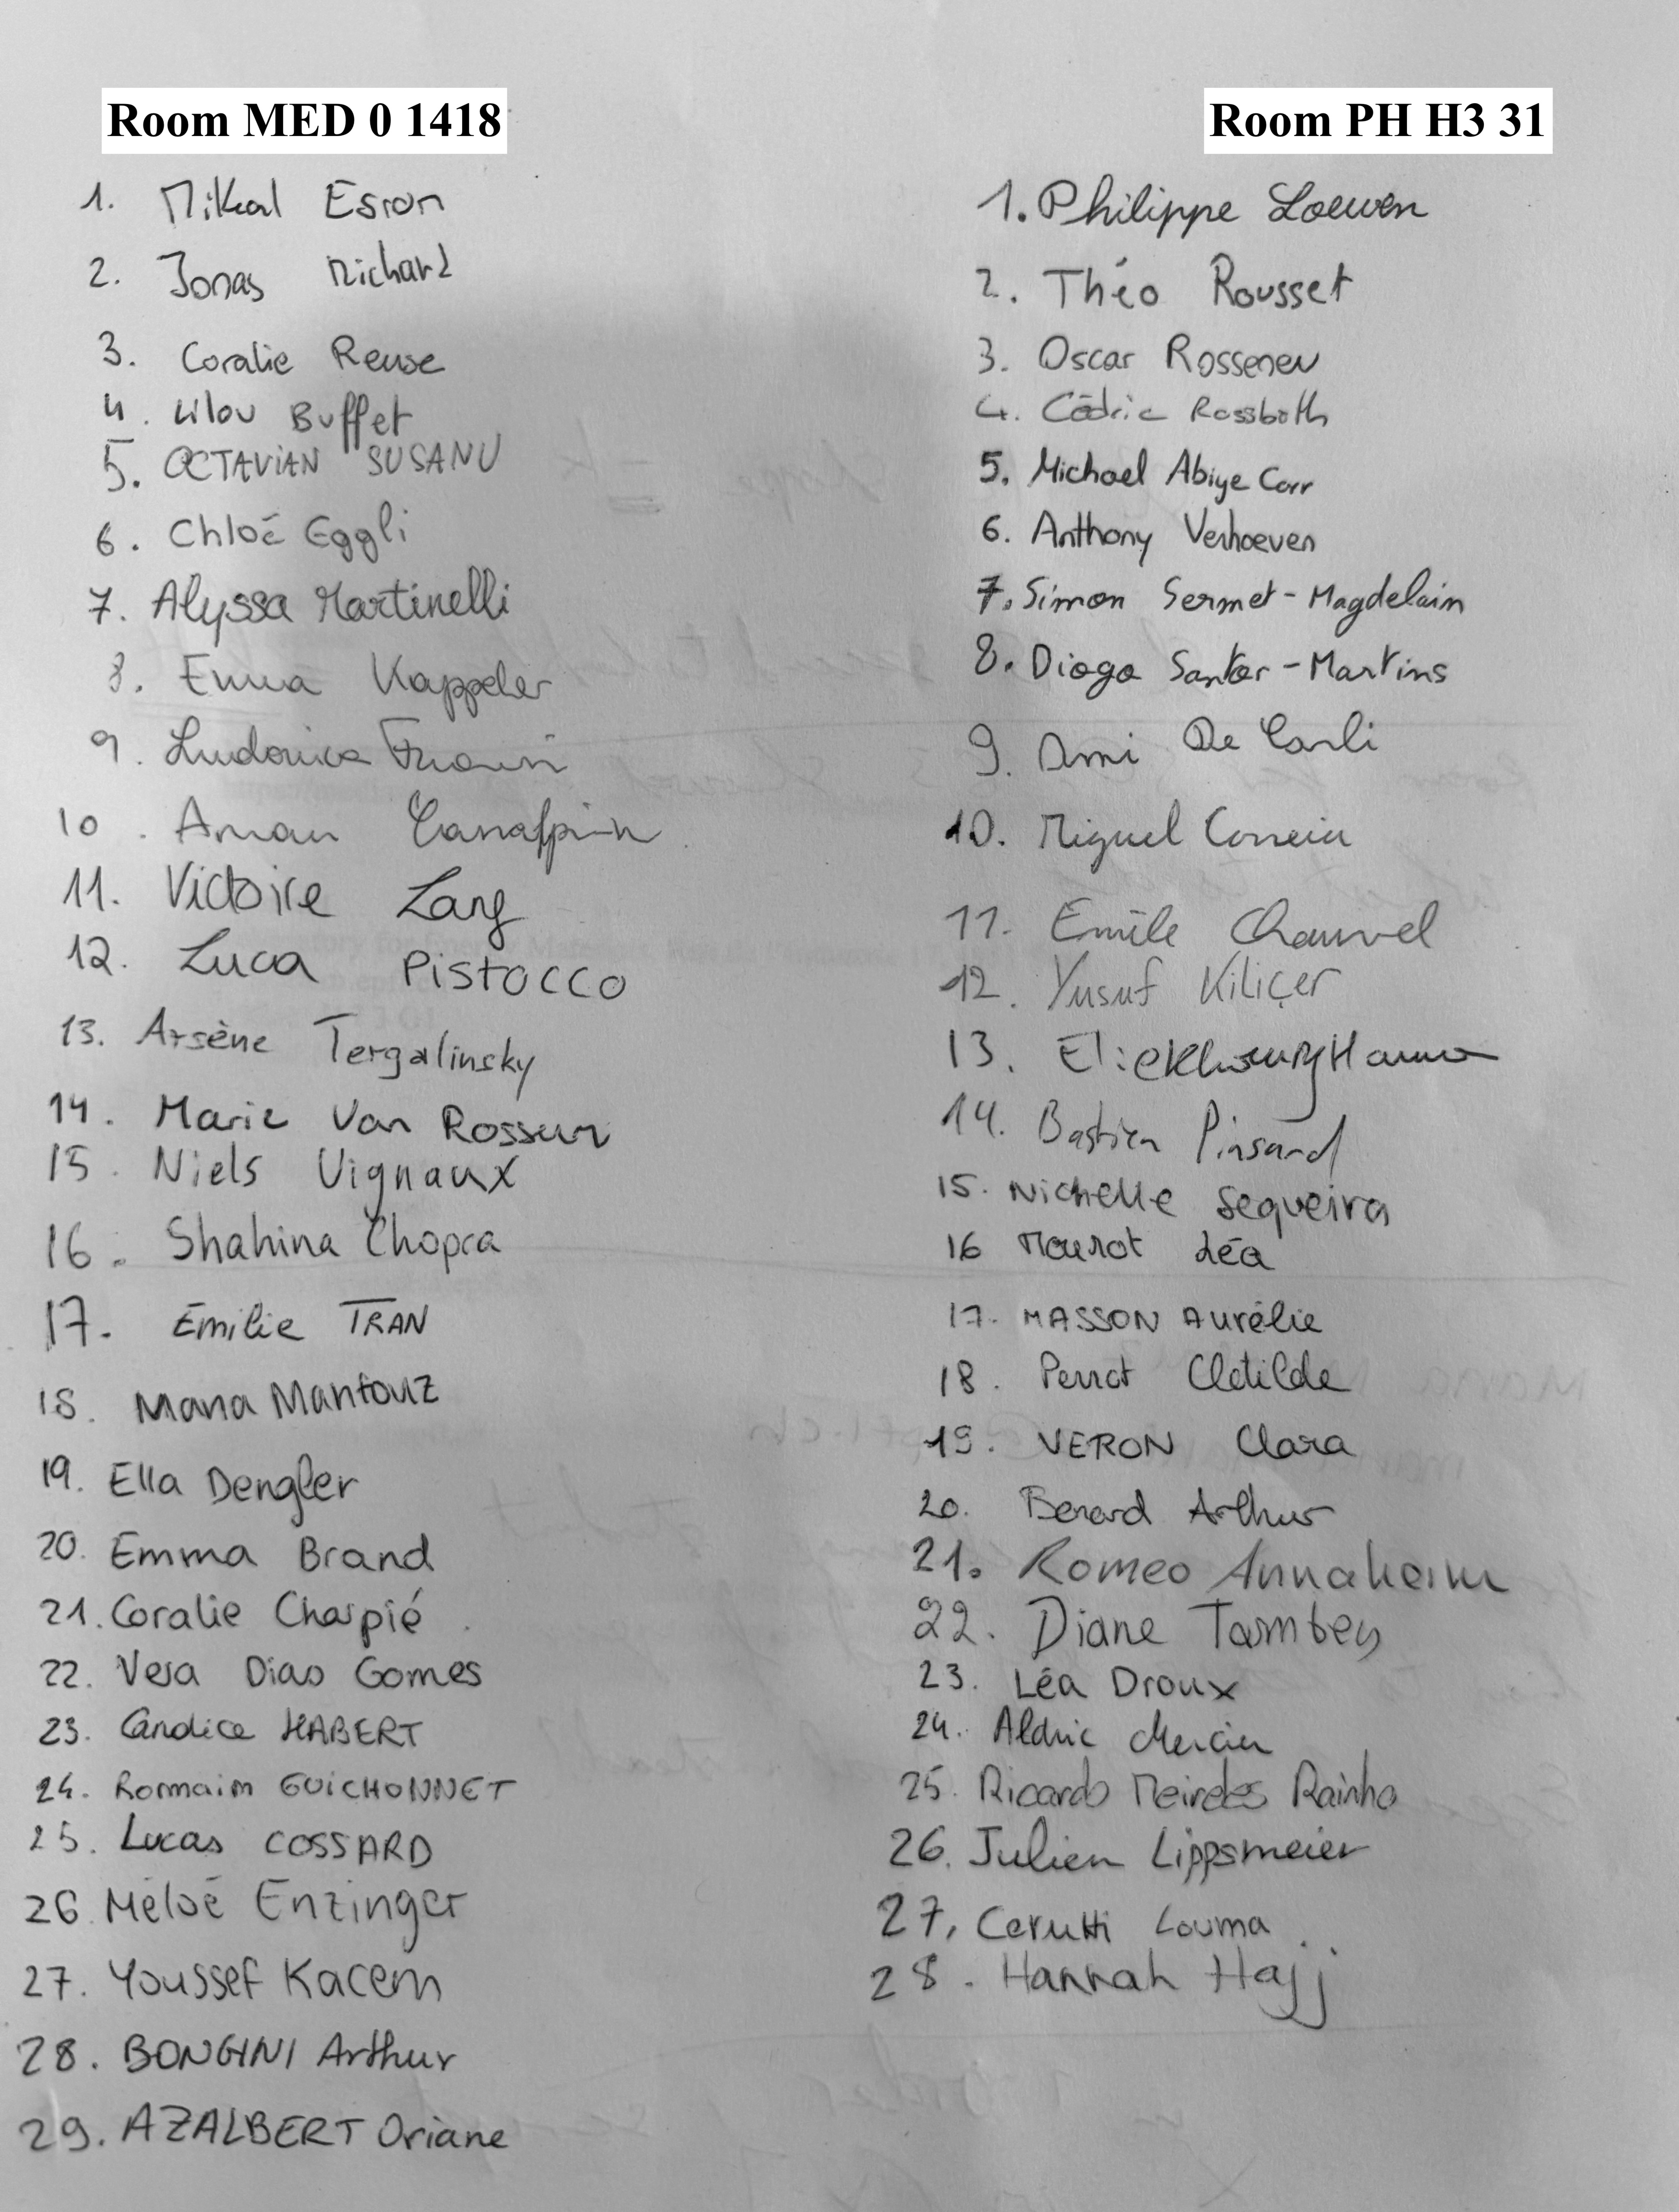 Room MED 0 1418
1. Mikael Esron
2. Jonas Richard
3. Coralie Reuse
4. Lilou Buffet
5. OCTAVIAN SUSANU
6. Chloé Eggli
7. Alyssa Martinelli
8. Emma Kappeler
9. Ludovica
10.
11. Victoire Lang
12. Luca PISTOCCO
13. Arsène Tergalinsky
14. Marie Van Rossum
15. Niels Vignaux
16. Shahina Chopra
17. Emilie TRAN
18. Mana Manfouz
19. Ella Dengler
20. Emma Brand
21. Coralie Charpié
22. Vera Dias Gomes
23. Candice HABERT
24. Romain GUICHONNET
25. Lucas COSSARD
26. Méloé Enzinger
27. Youssef Kacem
28. BONGINI Arthur
29. AZALBERT Oriane
Room PH H3 31
1. Philippe Loewen
2. Théo Rousset
3. Oscar Rossenev
4. Cédric Rossboth
5. Michael Abiye Carr
6. Anthony Verhoeven
7. Simon Sermet-Magdelain
8. Diogo Santos-Martins
9. Ami De Carli
10. Miguel Correia
11. Emile Chauvel
12. Yusuf Kiliçer
13. Elie Khoury Hanna
14. Bastien Pinsard
15. Nichelle Sequeira
16 Mourot Léa
17. MASSON Aurélie
18. Perrot Clotilde
19. VERON Clara
20. Benard Arthur
21. Romeo Annaheim
22. Diane Tambey
23. Léa Droux
24. Aldric Mercier
25. Ricardo Meireles Rainho
26. Julien Lippsmeier
27. Cerutti Louma
28. Hannah Hajj